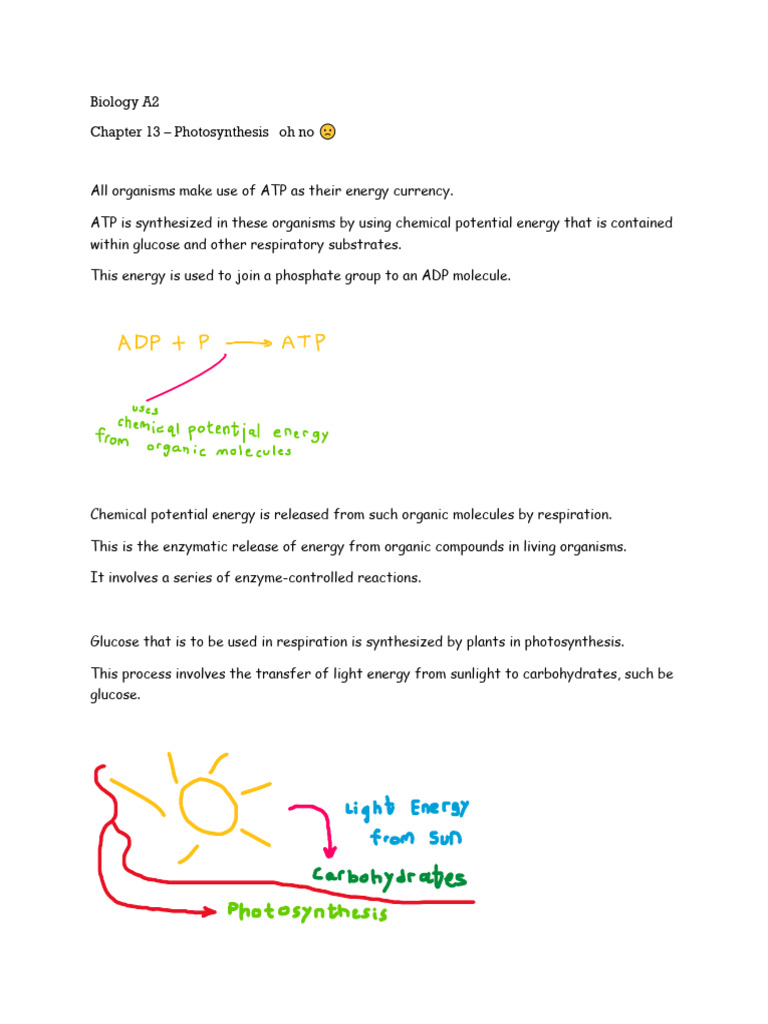 Biology A2
Chapter 13 – Photosynthesis oh no 🙁
All organisms make use of ATP as their energy currency.
ATP is synthesized in these organisms by using chemical potential energy that is contained
within glucose and other respiratory substrates.
This energy is used to join a phosphate group to an ADP molecule.
ADP + P → ATP
uses
chemical potential energy
from organic molecules
Chemical potential energy is released from such organic molecules by respiration.
This is the enzymatic release of energy from organic compounds in living organisms.
It involves a series of enzyme-controlled reactions.
Glucose that is to be used in respiration is synthesized by plants in photosynthesis.
This process involves the transfer of light energy from sunlight to carbohydrates, such be
glucose.
Light Energy
from Sun
Carbohydrates
Photosynthesis